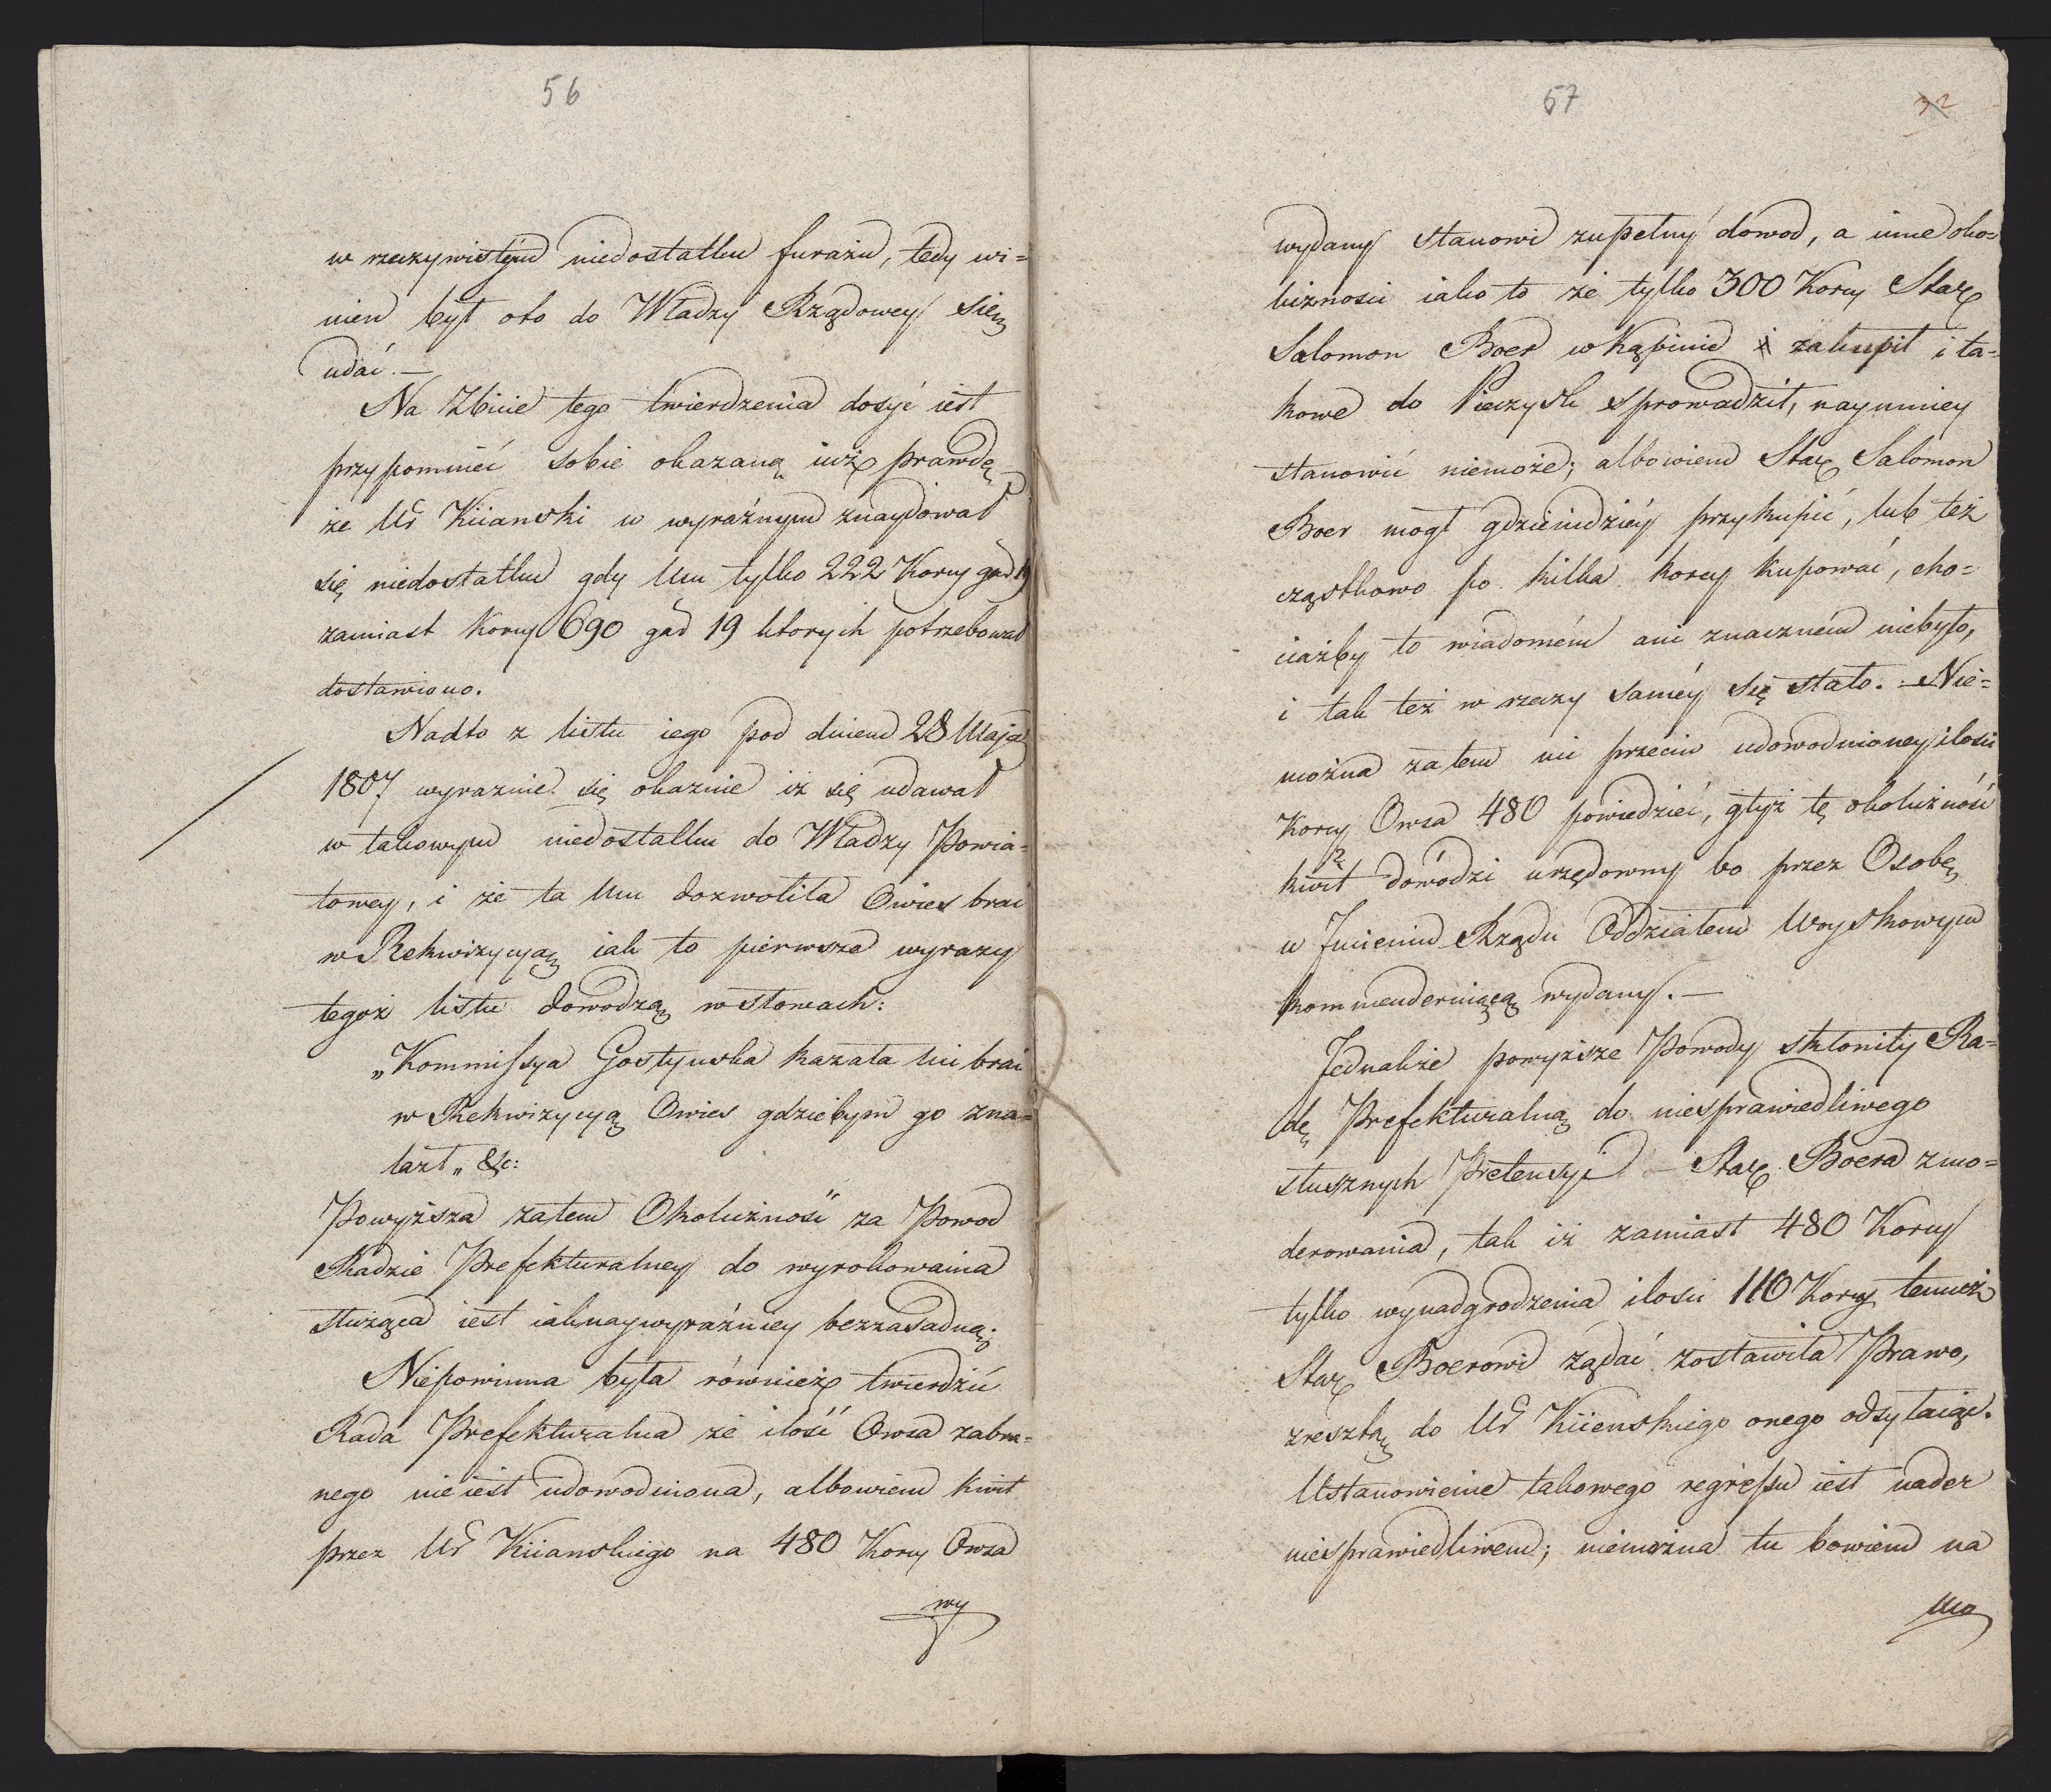 56
w rzeczywistym niedostatku furażu, tedy wi=
nien był oto do Władzy Rządowey się
udać. —
Na Zbicie tego twierdzenia dosyć iest
przypomnieć sobie okazaną iuż prawdę
że Ur Kiianski w wyraźnym znaydował
się niedostatku gdy Mu tylko 222 Korcy gar 19
zamiast Korcy 690 gar 19 ktorych potrzebował
dostawiono.
Nadto z listu iego pod dniem 28 Maja
1807 wyraznie się okaznie iż się udawał
w takowym niedostatku do Władzy Powia=
towey, i że ta Mu dozwoliła Owies brać
w Rekwizycyą iak to pierwsze wyrazy
tegoż listu dowodzą w słowach:
„Kommissya Gostynska kazała mi brać
w Rekwizycyą Owies gdziebym go zna=
lazł„ &c:
Powyższa zatem Okoliczność za Powod
Radzie Prefekturalney do wyrokowania
służąca iest iaknaywyraźniey bezzasadną.
Niepowinna była również twierdzić
Rada Prefekturalna że ilość Owsa zabra=
nego nieiest udowodniona, albowiem kwit
przez Ur Kiianskiego na 480 Korcy Owsa
wy
57
32
wydany stanowi zupełny dowod, a inne oko=
liczności iako to że tylko 300 Korcy Star
Salomon Boer w Kąpinie i zakupił i ta=
kowe do Pieczysk sprowadził, naymniey
stanowić niemoże; albowiem Star Salomon
Boer mogł gdzieindziéy przykupić, lub też
cząstkowo po kilka korcy kupować, cho=
ciażby to wiadomém ani znaczném niebyło,
i tak też w rzeczy saméy się stało. — Nie=
można zatem nic przeciw udowodnioney ilości
Korcy Owsa 480 powiedzieć, gdyż tę okoliczność
kwit dowodzi urzędowny bo przez Osobę
w Jmieniu Rządu Oddziałem Woyskowym
kommenderuiącą wydany. —
Jednakże powyższe Powody skłoniły Ra=
dę Prefekturalną do niesprawiedliwego
słusznych Pretensyi Star Boera zmo=
derowania, tak iż zamiast 480 Korcy
tylko wynadgrodzenia ilości 110 Korcy temuż
Star Boerowi żądać zostawiła Prawo,
zresztą do Ur Kiienskiego onego odsyłaiąc.
Ustanowienie takowego regressu iest nader
niesprawiedliwem; niemożna tu bowiem na
mo